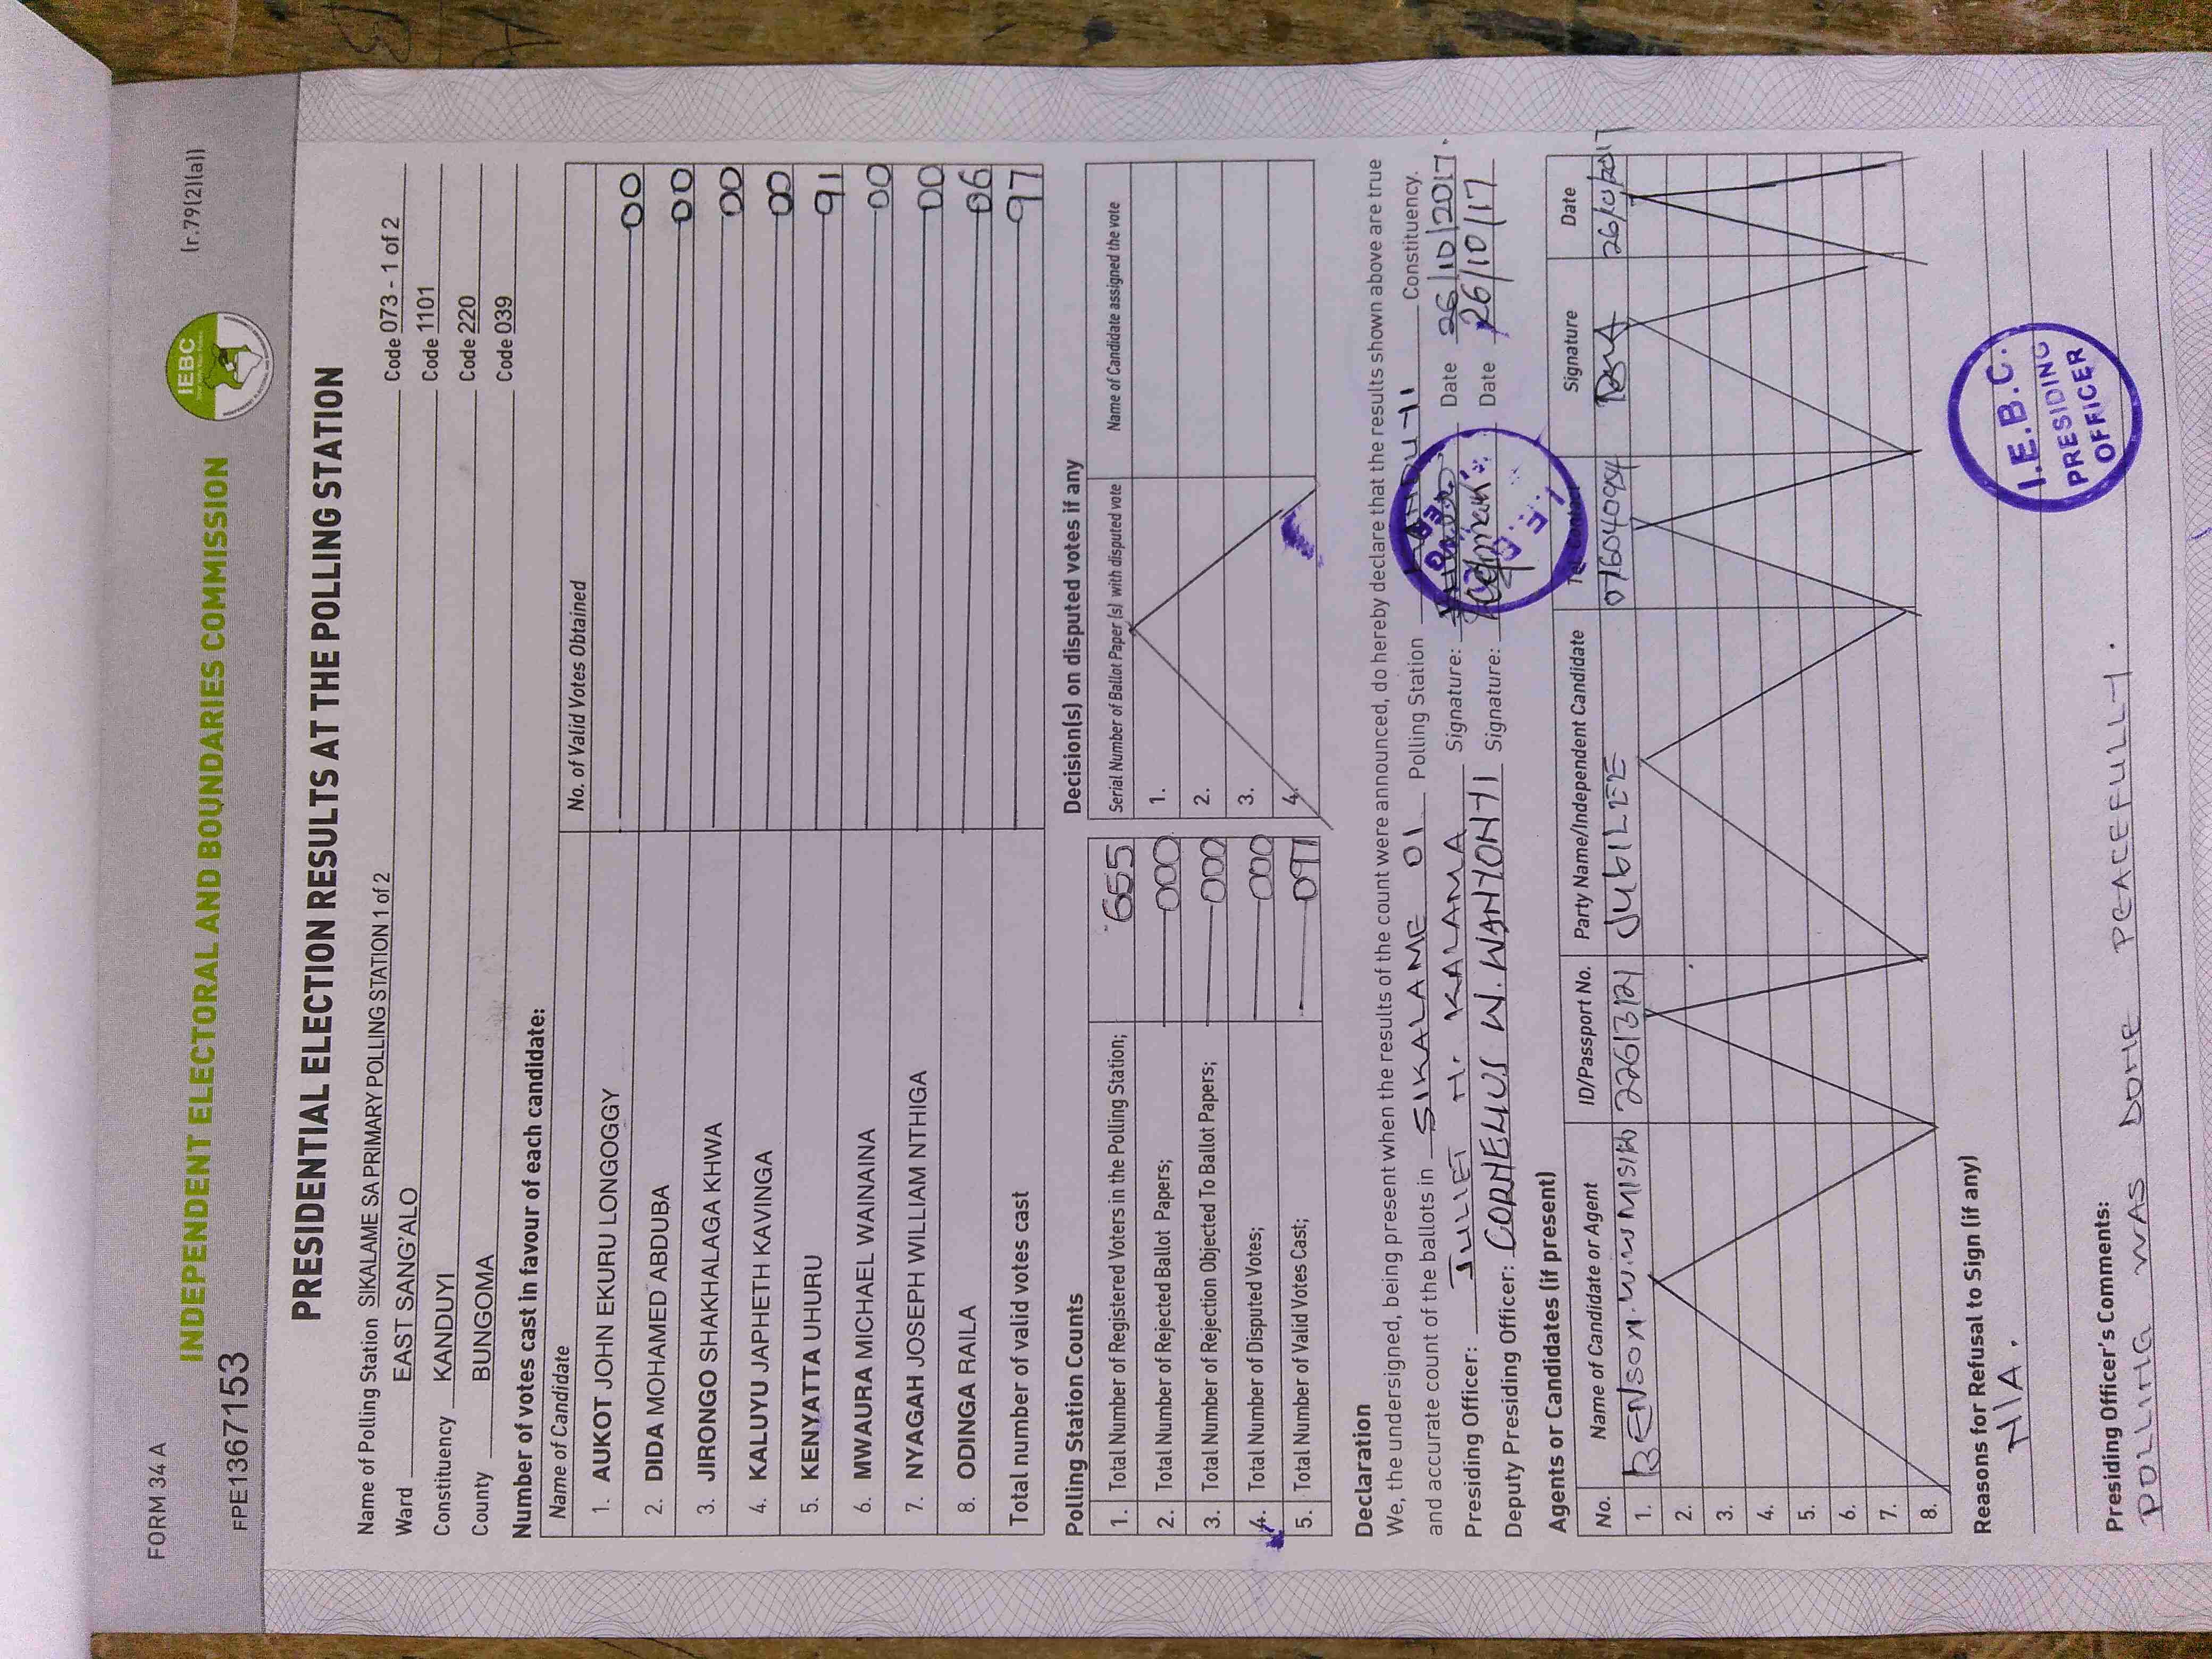 FORM 34 A
(r.79(2)(a))
IEBC
INDEPENDENT ELECTORAL AND BOUNDARIES COMMISSION
FPE1367153
PRESIDENTIAL ELECTION RESULTS AT THE POLLING STATION
Name of Polling Station SIKALAME SA PRIMARY POLLING STATION 1 of 2 Code 073 - 1 of 2
Ward EAST SANG'ALO Code 1101
Constituency KANDUYI Code 220
County BUNGOMA Code 039
Number of votes cast in favour of each candidate:
Name of Candidate No. of Valid Votes Obtained
1. AUKOT JOHN EKURU LONGOGGY 00
2. DIDA MOHAMED ABDUBA 00
3. JIRONGO SHAKHALAGA KHWA 00
4. KALUYU JAPHETH KAVINGA 00
5. KENYATTA UHURU 91
6. MWAURA MICHAEL WAINAINA 00
7. NYAGAH JOSEPH WILLIAM NTHIGA 00
8. ODINGA RAILA 06
Total number of valid votes cast 97
Polling Station Counts
1. Total Number of Registered Voters in the Polling Station; 655
2. Total Number of Rejected Ballot Papers; 000
3. Total Number of Rejection Objected To Ballot Papers; 000
4. Total Number of Disputed Votes; 000
5. Total Number of Valid Votes Cast; 097
Decision(s) on disputed votes if any
Serial Number of Ballot Paper (s) with disputed vote Name of Candidate assigned the vote
1.
2.
3.
4.
Declaration
We, the undersigned, being present when the results of the count were announced, do hereby declare that the results shown above are true
and accurate count of the ballots in SIKALAME 01 Polling Station KANDUYI Constituency.
Presiding Officer: JULIET N. KALAMA Signature: Date 26/10/2017.
Deputy Presiding Officer: CORNELIUS W. WANYONYI Signature: Date 26/10/17
Agents or Candidates (if present)
No. Name of Candidate or Agent ID/Passport No. Party Name/Independent Candidate Tel. Contact Signature Date
1. BENSON. W. 22613121 JUBILEE 26/10/2017
2.
3.
4.
5.
6.
7.
8.
Reasons for Refusal to Sign (if any)
N/A.
I.E.B.C.
PRESIDING
OFFICER
Presiding Officer's Comments:
POLLING WAS DONE PEACEFULLY.